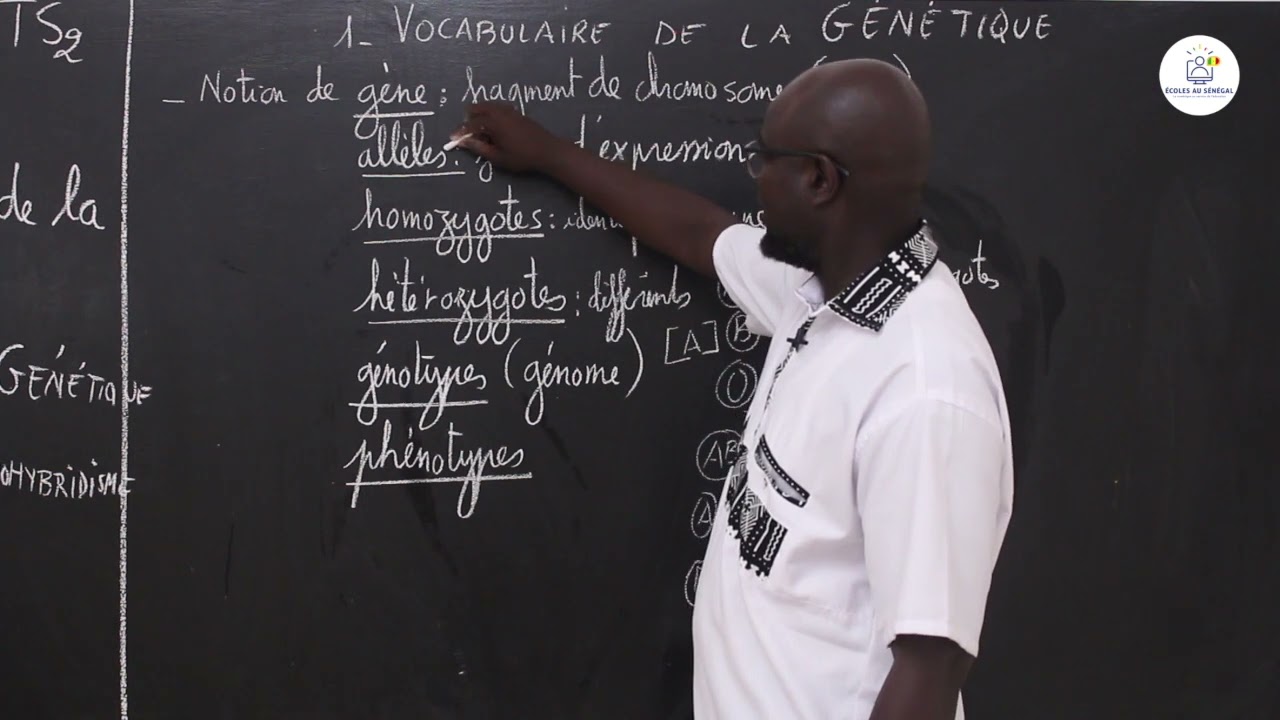 TS2
de la
GÉNÉTIQUE
OHYBRIDISME
1- VOCABULAIRE DE LA GÉNÉTIQUE
- Notion de gène : fragment de chromosome
allèles : d'expression
homozygotes :
hétérozygotes : différents
génotypes (génome) [A] B
O
phénotypes AB
A
ÉCOLES AU SÉNÉGAL